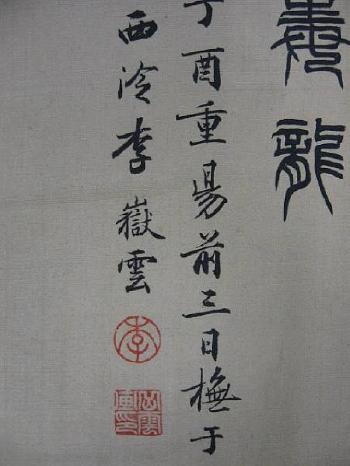 龍
丁酉重昜前三日橅于
西泠李嶽雲
李